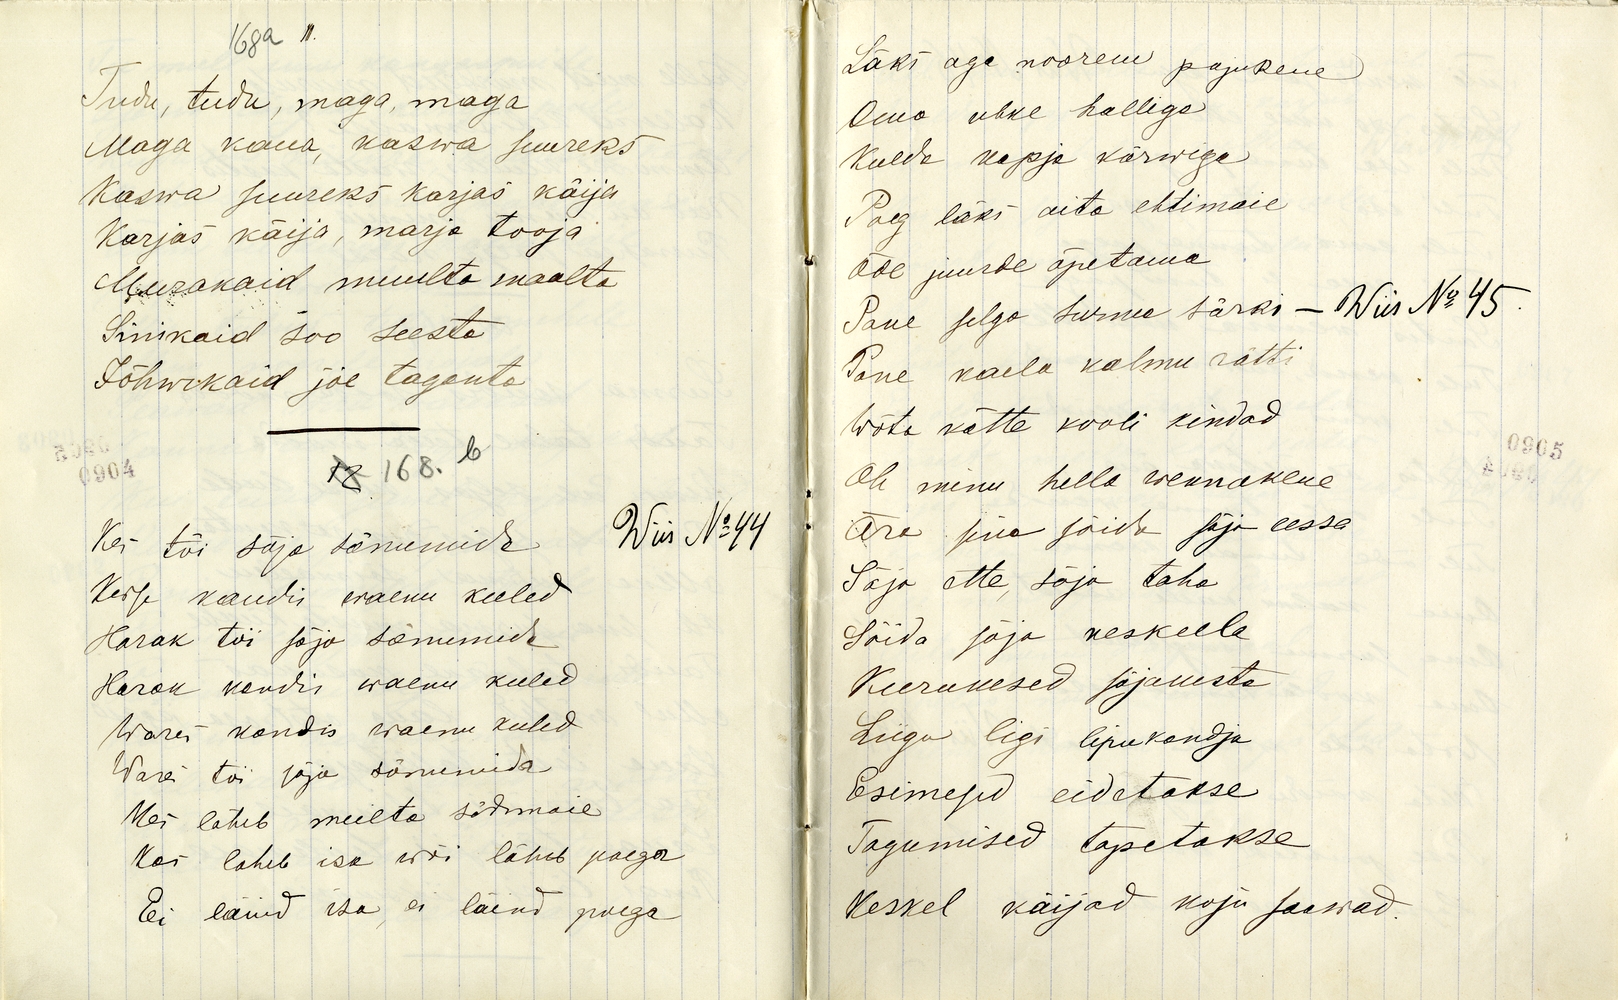 168a 11.
Tudu, tudu, maga, maga
Maga kaua, kaswa suureks
Kaswa suureks karjas käija
Karjas käija, marja tooja
Murakaid muulta maalta
Sinikaid soo seesta
Jõhwikaid jõe taganta
12 168. b
Kes tõi sõja sõnumida Wiis № 44
Kesse kandis waenu keeled
Harak tõi sõja sõnumida
Harak kandis waenu keeled
Wares kandis waenu keeled
Wares tõi sõja sõnumida
Kes läheb meilta sõdimaie
Kas läheb isa wõi läheb poega
Ei läind isa, ei läind poega
0904
Läks aga noorem pojukene
Oma uhke halliga
Kulda napja kõrwiga
Poeg läks aita ehtimaie
Õde juurde õpetama
Pane selga surnu särki – Wiis № 45.
Pane kaela kalmu rätti
Wõta kätte kooli kindad
Oh minu hella wennakene
Ära sina sõida sõja eessa
Sõja ette, sõja taha
Sõida sõja keskeela
Keerukesed sõjakesta
Liigu ligi lipukandja
Esimesed eidetakse
Tagumised tapetakse
Keskel käijad koju saawad.
0905